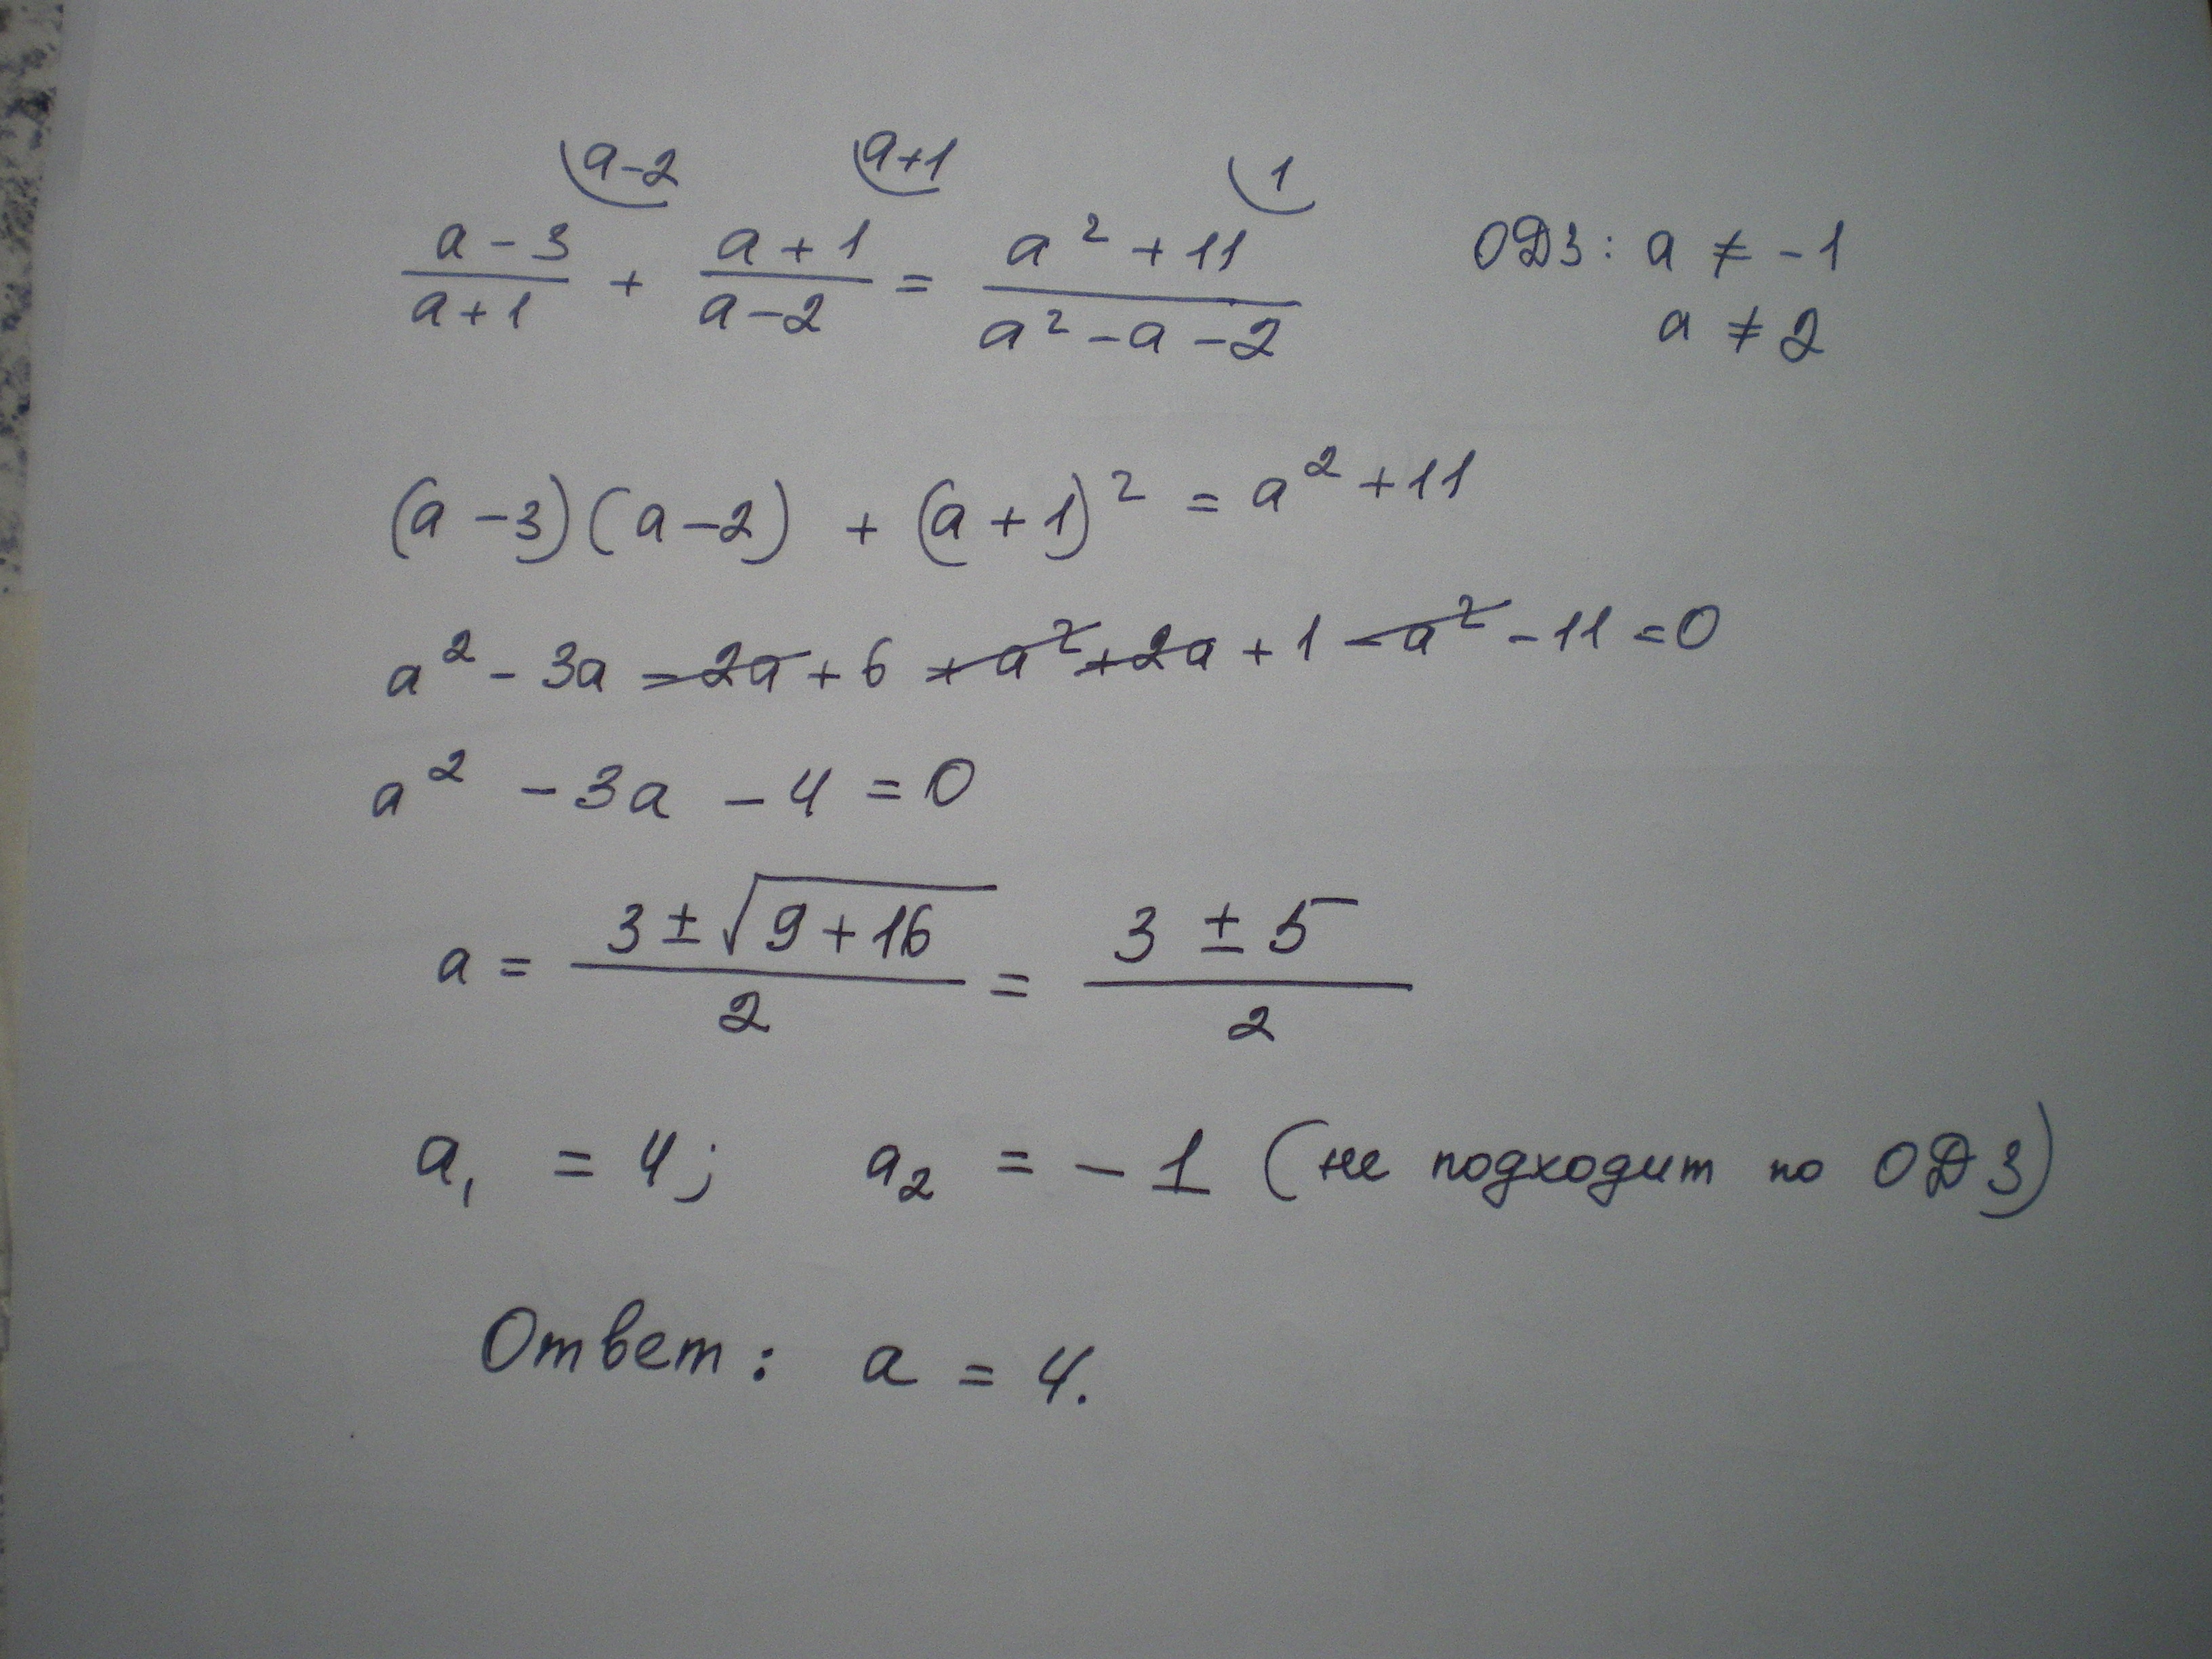 a-2 a+1 1
(a-3)/(a+1) + (a+1)/(a-2) = (a²+11)/(a²-a-2) ОДЗ: a ≠ -1
a ≠ 2
(a-3)(a-2) + (a+1)² = a²+11
a² - 3a - 2a + 6 + a² + 2a + 1 - a² - 11 = 0
a² - 3a - 4 = 0
a = (3 ± √(9+16))/2 = (3 ± 5)/2
a₁ = 4; a₂ = -1 (не подходит по ОДЗ)
Ответ: a = 4.